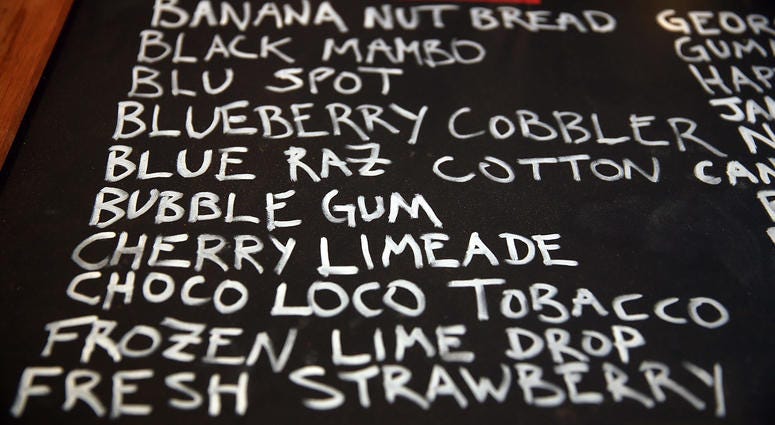 BANANA NUT BREAD
BLACK MAMBO
BLU SPOT
BLUEBERRY COBBLER
BLUE RAZ COTTON CAN
BUBBLE GUM
CHERRY LIMEADE
CHOCO LOCO TOBACCO
FROZEN LIME DROP
FRESH STRAWBERRY
GEOR
GUM
HA
JA